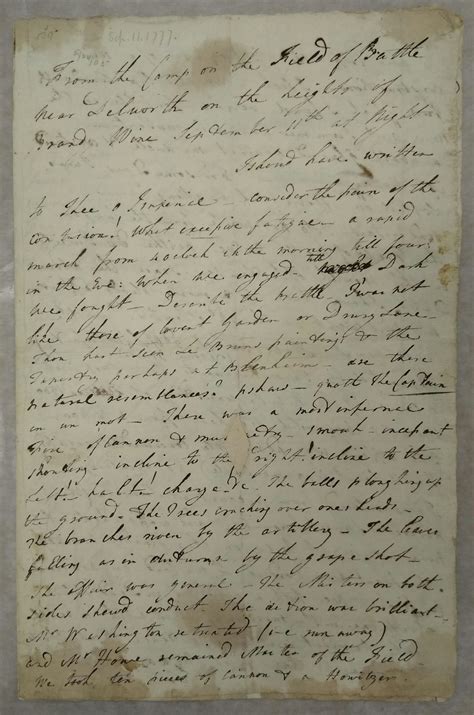 Sep. 11. 1777.
From the Camp on the Field of Battle
near Dilworth on the heights of
Brand Wine September 11th at Night
I shoud have written
to Thee o! consider the pain of the
contusion! What excessive fatigue - a rapid
march from 4 oclock in the morning till four
in the Eve: When we engaged - till Dark
we fought - Describe the battle - T'was not
like those of Covent Garden or Drury Lane -
Thou hast seen Le Bruns paintings & the
Tapestry perhaps at Blenheim - are these
natural resemblances? pshaw - quoth the Captain
in un mot - There was a most infernal
Fire of Cannon & musketry - smoak - incessant
shouting - incline to the right! incline to the
Left! halt! charge! &c The balls ploughing up
the ground - The Trees cracking over ones heads -
The branches riven by the artillery - The leaves
falling as in Autumn by the grape shot -
The affair was general - The Masters on both
sides shewd conduct. The action was brilliant -
Mr Washington retreated (i-e run away)
and Mr Howe remained Master of the Field -
We took ten pieces of Cannon & a Howitzer